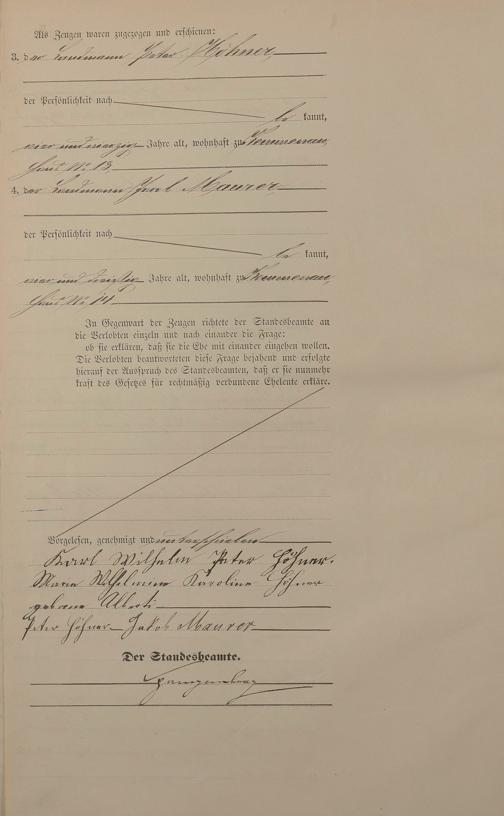 Als Zeugen waren zugezogen und erschienen:
3. der Landmann Peter Höhner,
der Persönlichkeit nach
be kannt,
Jahre alt, wohnhaft zu Kemmenau,
Haus No 13.
4. der Landmann Jacob Maurer,
der Persönlichkeit nach
be kannt,
Jahre alt, wohnhaft zu Kemmenau,
Haus No 14.
In Gegenwart der Zeugen richtete der Standesbeamte an
die Verlobten einzeln und nach einander die Frage:
ob sie erklären, daß sie die Ehe mit einander eingehen wollen.
Die Verlobten beantworteten diese Frage bejahend und erfolgte
hierauf der Ausspruch des Standesbeamten, daß er sie nunmehr
kraft des Gesetzes für rechtmäßig verbundene Eheleute erkläre.
Vorgelesen, genehmigt und unterschrieben
Karl Wilhelm Peter Höhner.
Marie Wilhelmine Karoline Höhner
geborne Alberti
Peter Höhner Jakob Maurer
Der Standesbeamte.